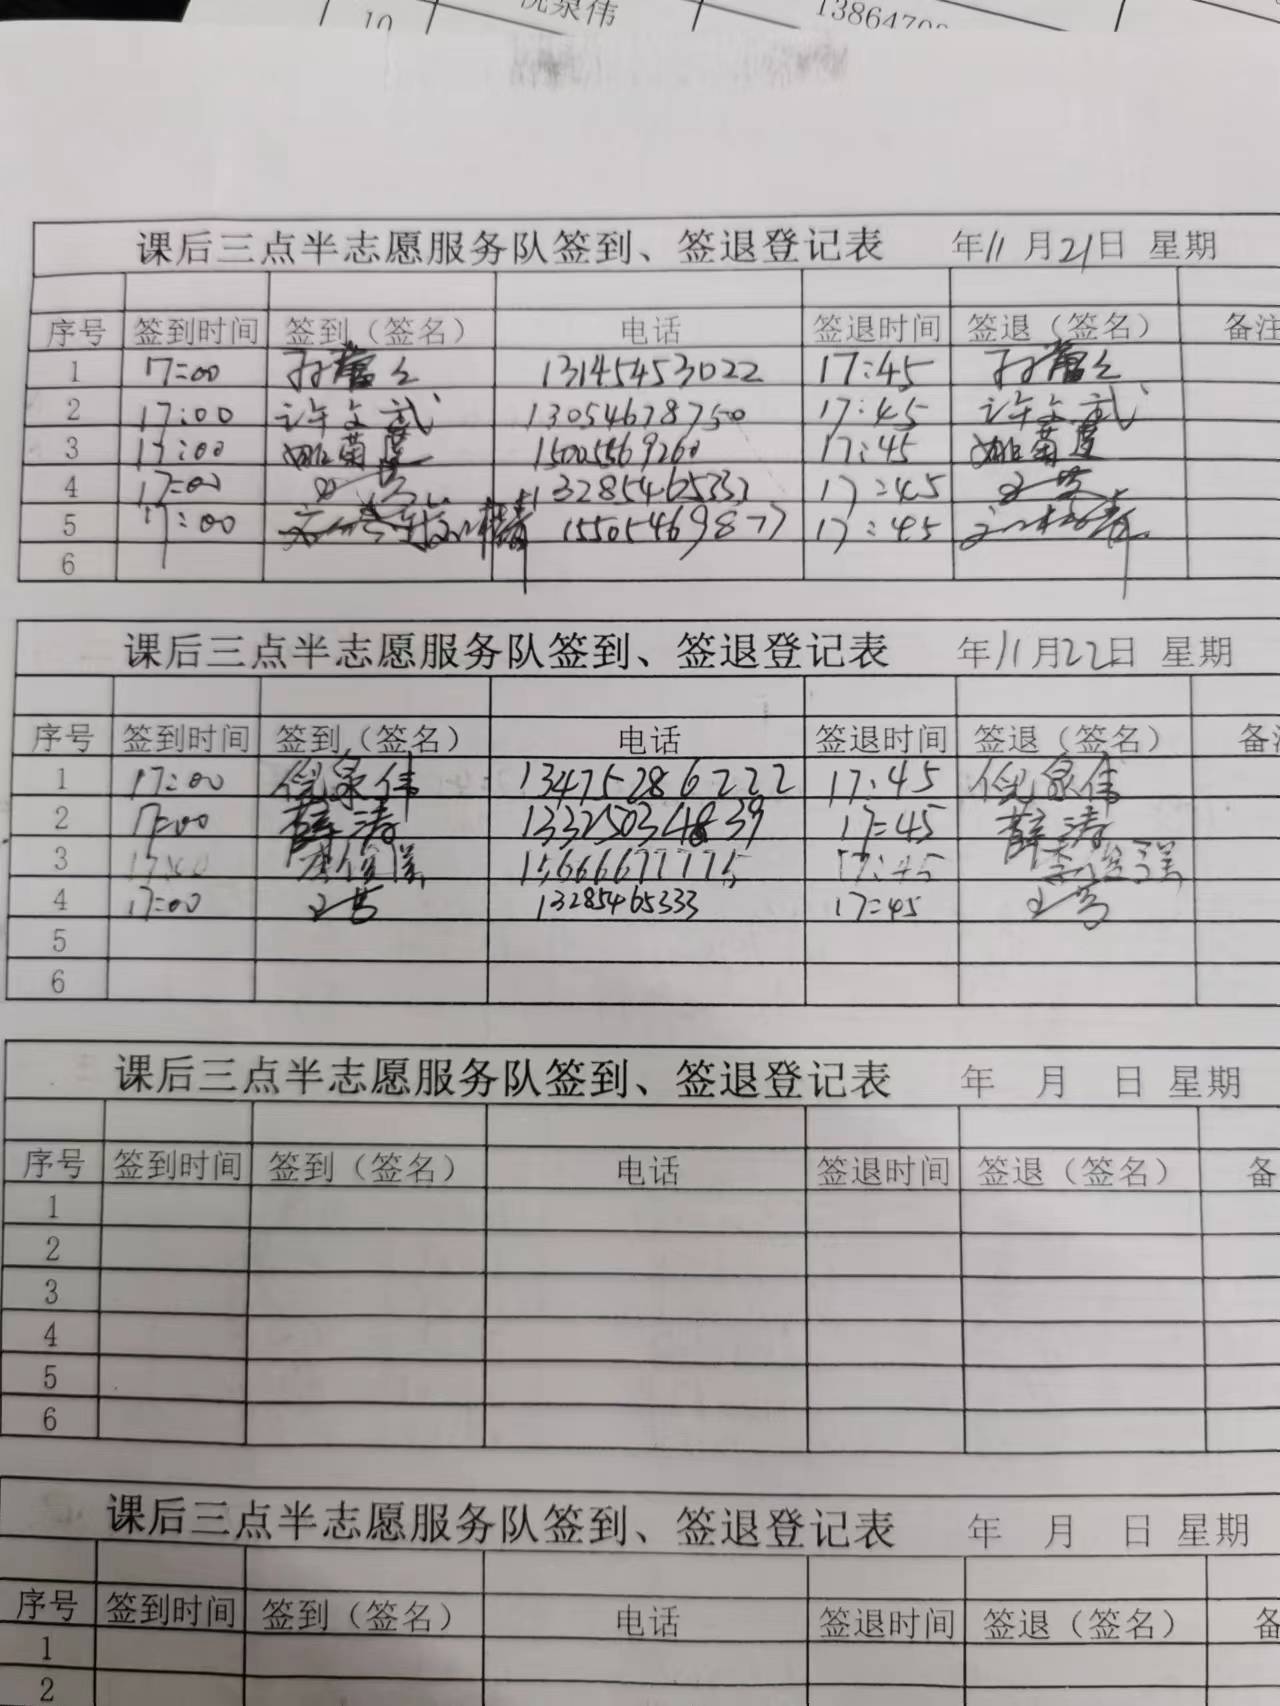 10 倪泉伟 13864708
课后三点半志愿服务队签到、签退登记表 年11月21日 星期
序号 签到时间 签到（签名） 电话 签退时间 签退（签名） 备注
1 17:00 13145453022 17:45
2 17:00 许文武 13054678750 17:45 许文武
3 17:00 姚菊莲 15005569260 17:45 姚菊莲
4 17:00 王芸 13285465333 17:45 王芸
5 17:00 15505469877 17:45
6
课后三点半志愿服务队签到、签退登记表 年11月22日 星期
序号 签到时间 签到（签名） 电话 签退时间 签退（签名） 备
1 17:00 倪泉伟 13475286222 17:45 倪泉伟
2 17:00 薛涛 13325034839 17:45 薛涛
3 17:00 李俊溪 15666677775 17:45 李俊溪
4 17:00 王芸 13285465333 17=45 王芸
5
6
课后三点半志愿服务队签到、签退登记表 年 月 日 星期
序号 签到时间 签到（签名） 电话 签退时间 签退（签名） 备
1
2
3
4
5
6
课后三点半志愿服务队签到、签退登记表 年 月 日 星期
序号 签到时间 签到（签名） 电话 签退时间 签退（签名） 备
1
2